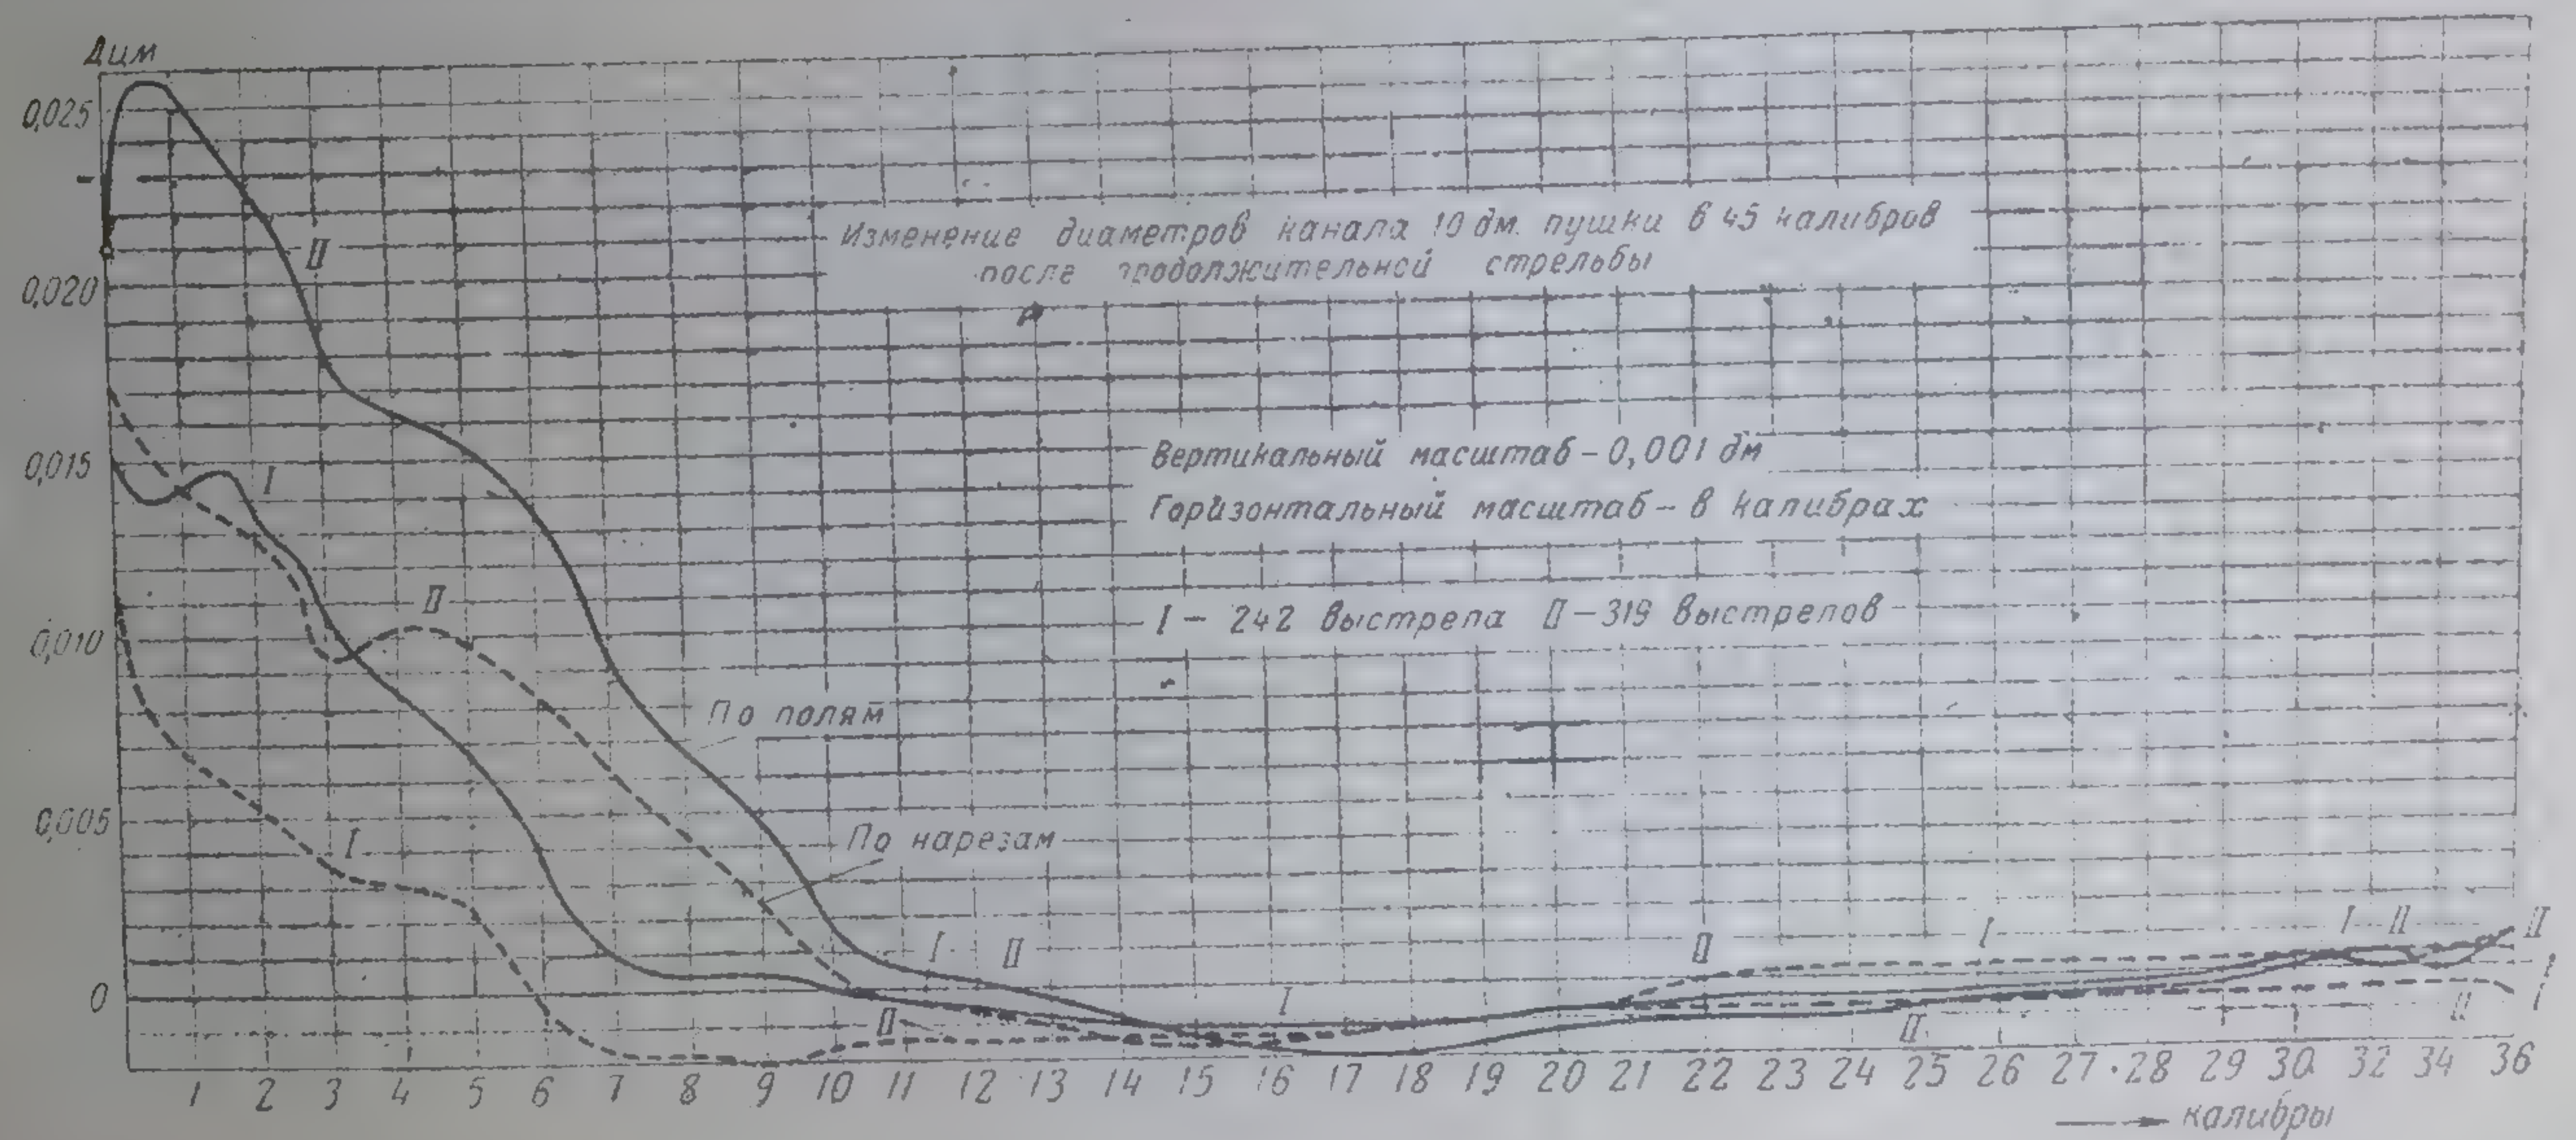 Дцм
0,025
0,020
0,015
0,010
0,005
0
II
I
II
I
Изменение диаметров канала 10 дм. пушки в 45 калибров
после продолжительной стрельбы
Вертикальный масштаб – 0,001 дм
Горизонтальный масштаб – в калибрах
I – 242 выстрела II – 319 выстрелов
По полям
По нарезам
I II
II
I
II
I
II
I II
II
I
II
1 2 3 4 5 6 7 8 9 10 11 12 13 14 15 16 17 18 19 20 21 22 23 24 25 26 27 28 29 30 32 34 36
калибры